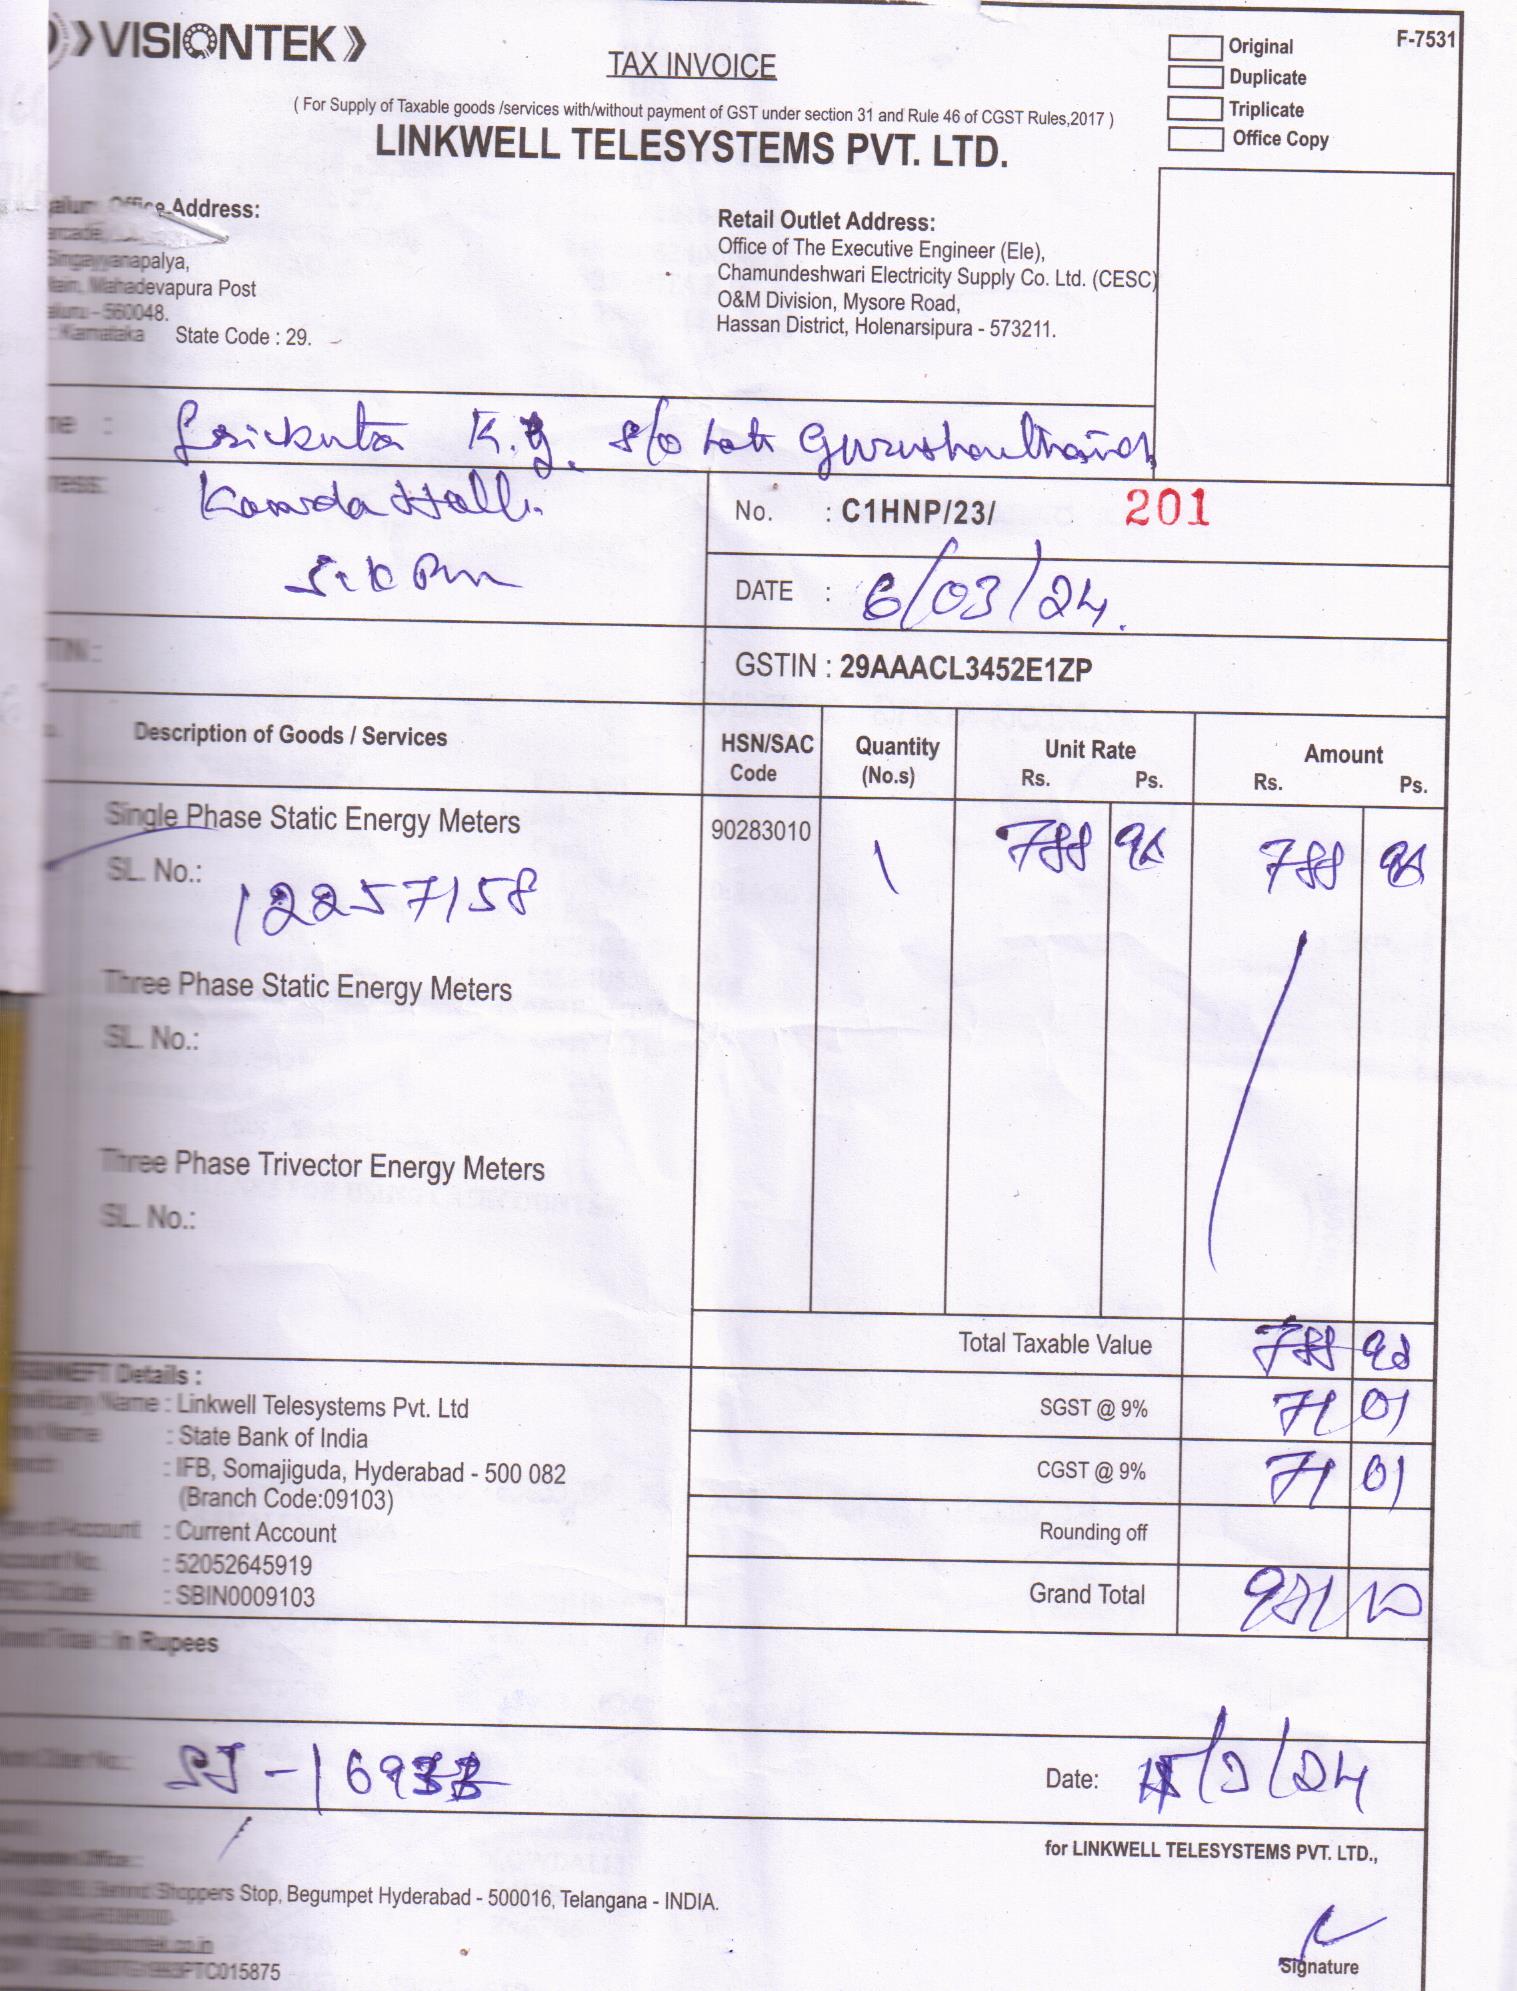 VISIONTEK
TAX INVOICE
Original
F-7531
Duplicate
Triplicate
Office Copy
( For Supply of Taxable goods /services with/without payment of GST under section 31 and Rule 46 of CGST Rules,2017 )
LINKWELL TELESYSTEMS PVT. LTD.
Office Address:
Singayyanapalya,
Mahadevapura Post
- 560048.
Karnataka State Code : 29.
Retail Outlet Address:
Office of The Executive Engineer (Ele),
Chamundeshwari Electricity Supply Co. Ltd. (CESC)
O&M Division, Mysore Road,
Hassan District, Holenarsipura - 573211.
K.g. s/o
No. : C1HNP/23/ 201
DATE : 6/03/24.
GSTIN : 29AAACL3452E1ZP
Description of Goods / Services
HSN/SAC Code
Quantity (No.s)
Unit Rate Rs. Ps.
Amount Rs. Ps.
Single Phase Static Energy Meters 90283010 1 788 788
SL. No.: 12257158
Three Phase Static Energy Meters
SL. No.:
Three Phase Trivector Energy Meters
SL. No.:
Total Taxable Value 788
SGST @ 9% 71 01
CGST @ 9% 71 01
Rounding off
Grand Total
Details :
Name : Linkwell Telesystems Pvt. Ltd
: State Bank of India
: IFB, Somajiguda, Hyderabad - 500 082
(Branch Code:09103)
Account : Current Account
: 52052645919
: SBIN0009103
In Rupees
Date:
for LINKWELL TELESYSTEMS PVT. LTD.,
Shoppers Stop, Begumpet Hyderabad - 500016, Telangana - INDIA.
PTC015875
Signature